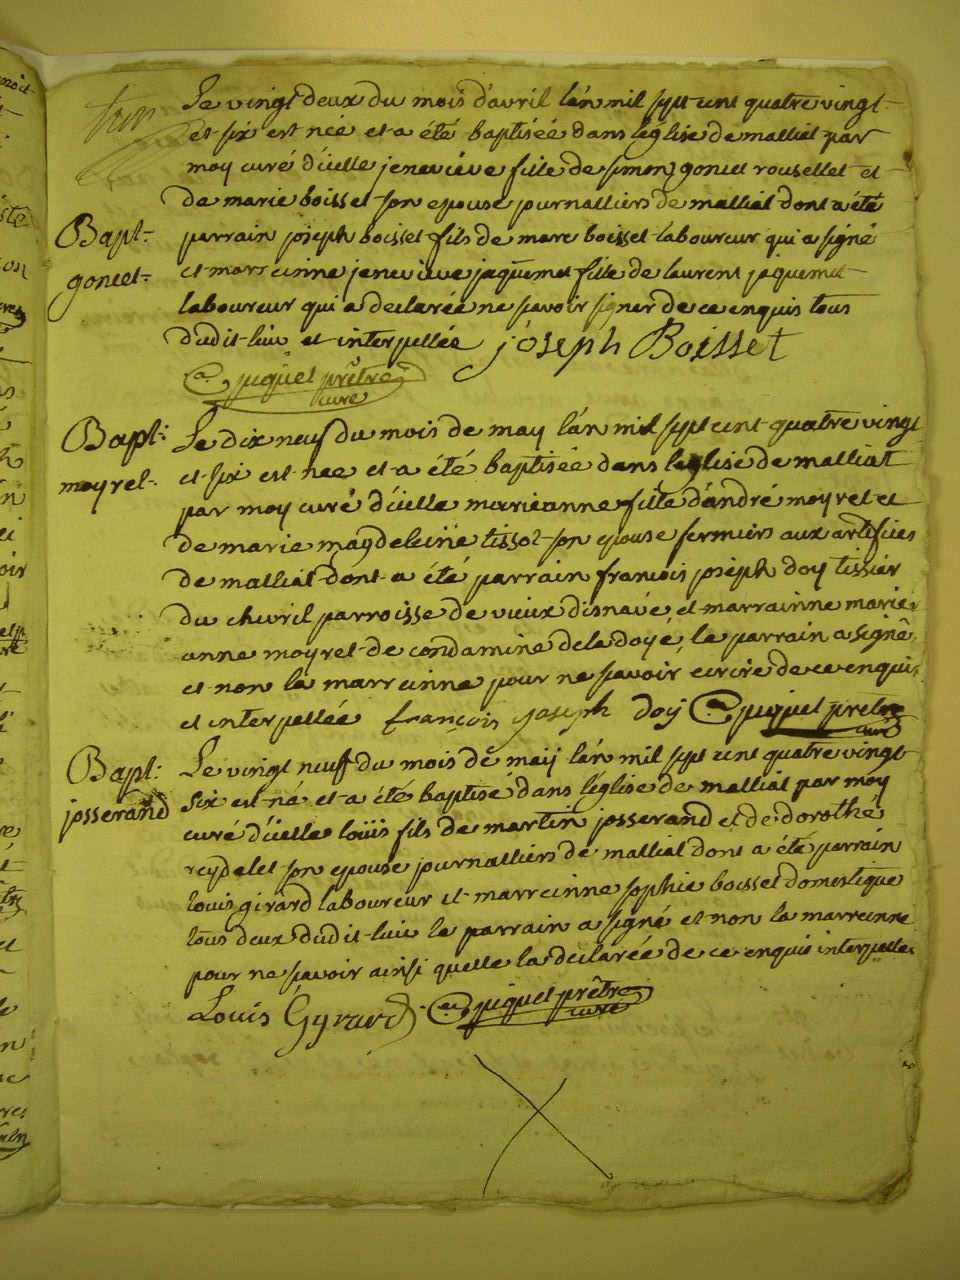 Le vingt deux du mois d'avril l'an mil sept cent quatre vingt
et six est née et a été baptisée dans l'église de malliat par
moy curé d'icelle jenevieve fille de simon goniet rousellet et
de marie boisset son epouse journalliers de malliat dont a été
Bapt:
parrain joseph boisset fils de marc boisset laboureur qui a signé
goniet
et marreinne jenevieve jaquemet fille de laurent jaquemet
laboureur qui a declarée ne savoir signer de ce enquis tous
dudit lieu et interpellée joseph Boisset
puguet prêtre
curé
Bapt:
Le dix neuf du mois de may l'an mil sept cent quatre vingt
moyrel
et six est née et a été baptisée dans l'eglise de malliat
par moy curé d'icelle marieanne fille d'andré moyret et
de marie magdeleine tissot son epouse fermiers aux artifices
de malliat dont a été parrain francois joseph doy tissier
du chevril parroisse de vieux disnave et marrainne marie
anne moyret de condamine de la doye, le parrain a signé
et non la marreinne pour ne savoir ecrire de ce enquis
et interpellée françois joseph doy puguet prêtre
curé
Bapt:
Le vingt neuf du mois de may l'an mil sept cent quatre vingt
josserand
six est né et a été baptisé dans l'église de malliat par moy
curé d'icelle loüis fils de martin josserand et de dorothé
reydelet son epouse journalliers de malliat dont a été parrain
louis girard laboureur et marreinne sophie boisset domestique
tous deux dudit lieu le parrain a signé et non la marreinne
pour ne savoir ainsi quelle la déclarée de ce enquis interpellée
Louis Gyrard puguet prêtre
curé